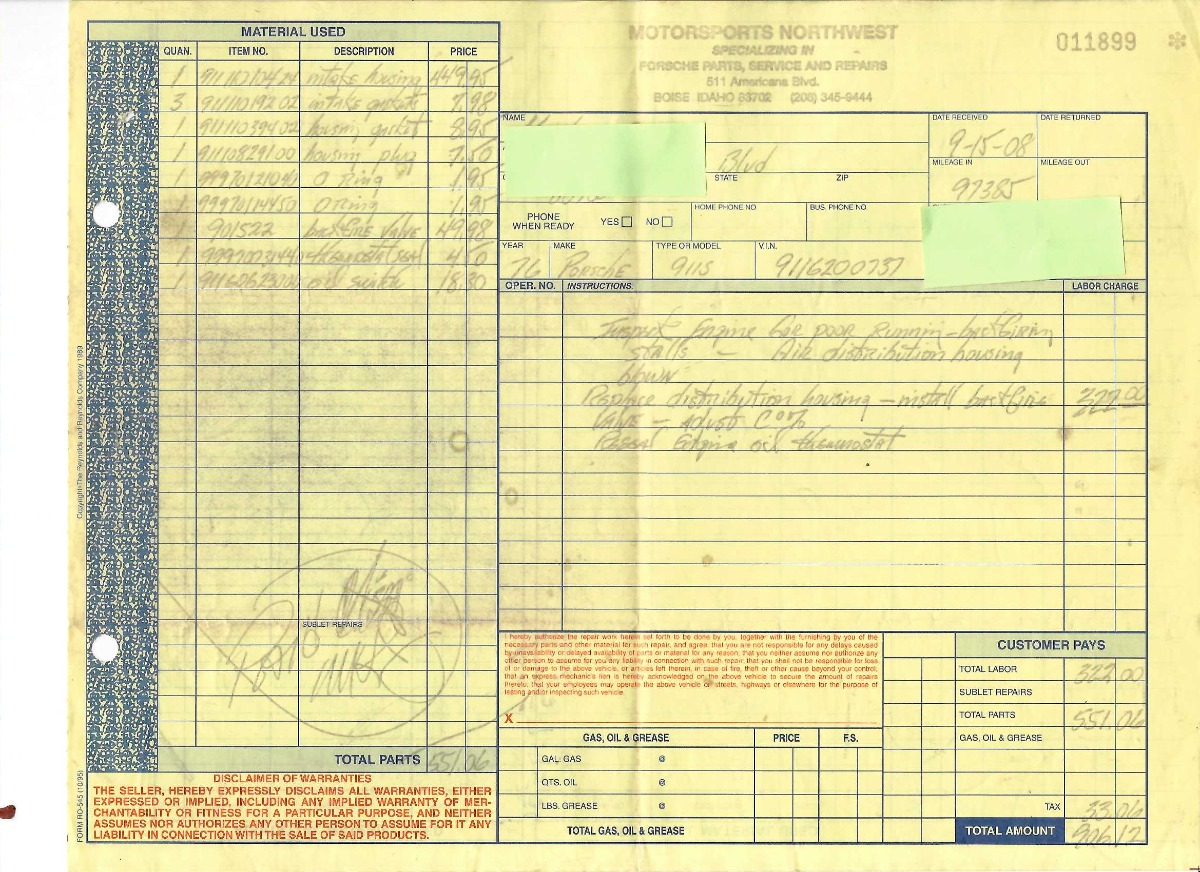 MATERIAL USED
QUAN. ITEM NO. DESCRIPTION PRICE
1 91111010424 intake housing 449.95
3 91111019202 intake gaskets 7.98
1 91111039402 housing gasket 8.95
1 91110829100 housing plug 7.50
1 99970121040 O Ring 1.95
1 99970114450 O Ring 1.95
1 901522 backfire valve 49.98
1 thermostat seal 4.50
1 oil switch 18.30
SUBLET REPAIRS
Paid
TOTAL PARTS 551.06
DISCLAIMER OF WARRANTIES
THE SELLER, HEREBY EXPRESSLY DISCLAIMS ALL WARRANTIES, EITHER
EXPRESSED OR IMPLIED, INCLUDING ANY IMPLIED WARRANTY OF MER-
CHANTABILITY OR FITNESS FOR A PARTICULAR PURPOSE, AND NEITHER
ASSUMES NOR AUTHORIZES ANY OTHER PERSON TO ASSUME FOR IT ANY
LIABILITY IN CONNECTION WITH THE SALE OF SAID PRODUCTS.
Copyright-The Reynolds and Reynolds Company 1989
FORM RO-545 (10/95)
MOTORSPORTS NORTHWEST
SPECIALIZING IN
PORSCHE PARTS, SERVICE AND REPAIRS
511 Americana Blvd.
BOISE IDAHO 83702 (208) 345-9444
011899
NAME
DATE RECEIVED DATE RETURNED
9-15-08
Blvd
MILEAGE IN MILEAGE OUT
STATE ZIP
97385
PHONE WHEN READY YES NO HOME PHONE NO. BUS. PHONE NO.
YEAR MAKE TYPE OR MODEL V.I.N.
76 Porsche 911S 9116200737
OPER. NO. INSTRUCTIONS: LABOR CHARGE
Inspect Engine for poor Running - backfiring
stalls - Air distribution housing
blown
Replace distribution housing - install backfire 322.00
Valve - Adjust CO%
Reseal Engine oil thermostat
I hereby authorize the repair work herein set forth to be done by you, together with the furnishing by you of the
necessary parts and other material for such repair, and agree: that you are not responsible for any delays caused
by unavailability or delayed availability of parts or material for any reason; that you neither assume nor authorize any
other person to assume for you any liability in connection with such repair; that you shall not be responsible for loss
of or damage to the above vehicle, or articles left therein, in case of fire, theft or other cause beyond your control;
that an express mechanic's lien is hereby acknowledged on the above vehicle to secure the amount of repairs
thereto; that your employees may operate the above vehicle on streets, highways or elsewhere for the purpose of
testing and/or inspecting such vehicle.
X
GAS, OIL & GREASE PRICE F.S.
GAL. GAS @
QTS. OIL @
LBS. GREASE @
TOTAL GAS, OIL & GREASE
CUSTOMER PAYS
TOTAL LABOR 322.00
SUBLET REPAIRS
TOTAL PARTS 551.06
GAS, OIL & GREASE
TAX 33.06
TOTAL AMOUNT 906.12